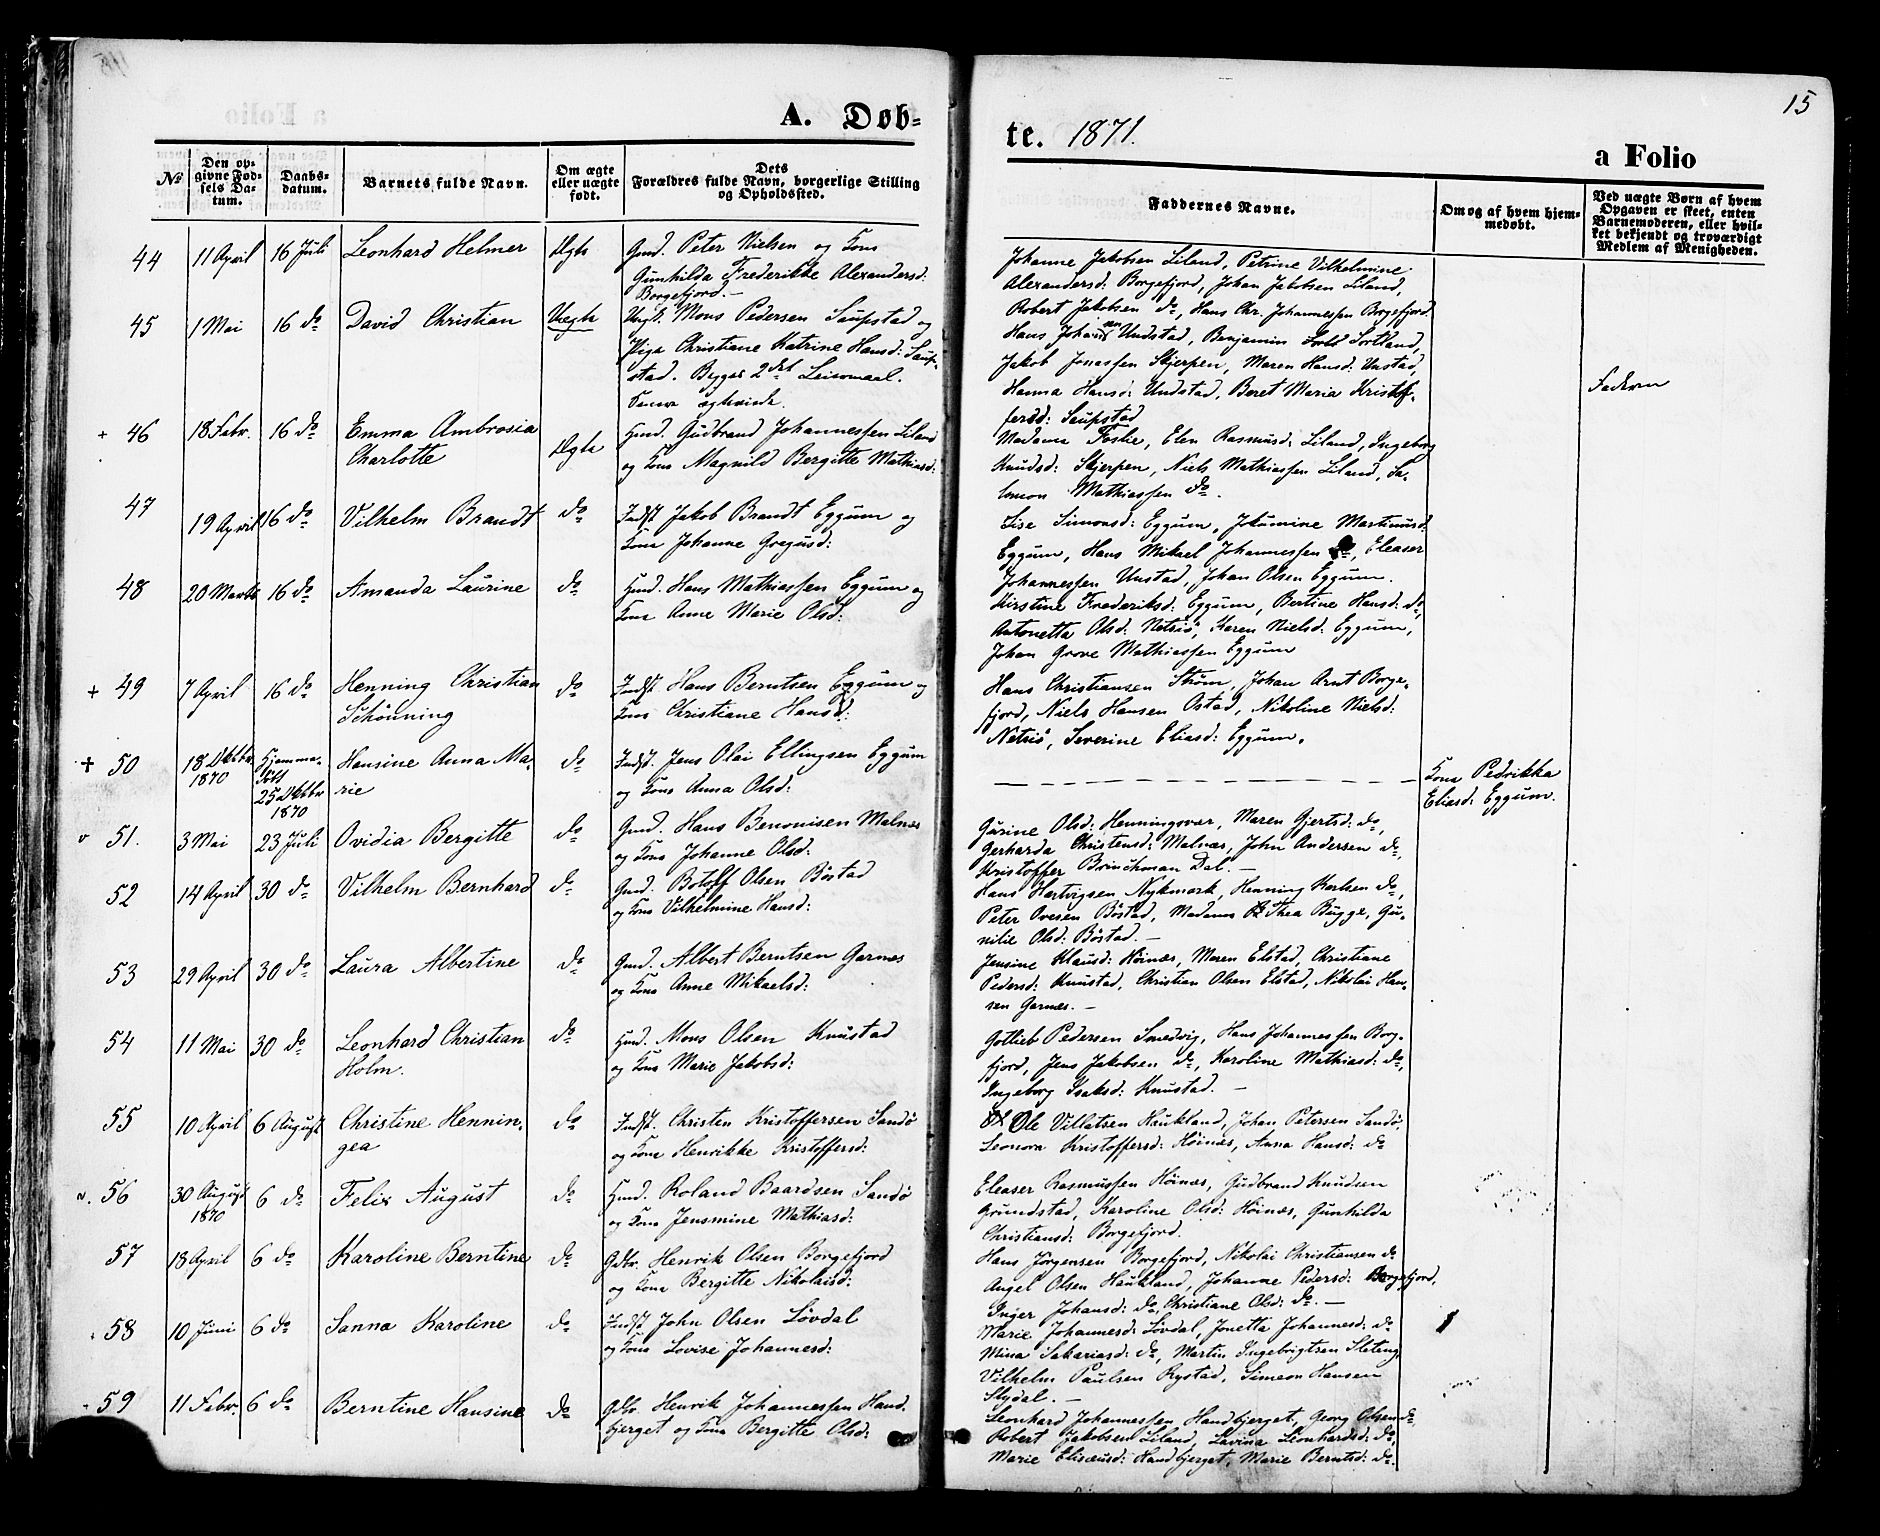 15
A. Døb-
te. 1871.
a Folio
No
Den op-
givne Fød-
sels Da-
tum.
Daabs-
datum.
Barnets fulde Navn.
Om ægte
eller uægte
født.
Dets
Forældres fulde Navn, borgerlige Stilling
og Opholdssted.
Faddernes Navne.
Om og af hvem hjem-
medøbt.
Ved uægte Børn af hvem
Opgaven er skeet, enten
Barnemoderen, eller hvil-
ket bekjendt og troværdigt
Medlem af Menigheden.
44 11 April 16 Juli Leonhard Helmer Ægte Gmd. Peter Nielsen og Kone
Gunhilda Frederikke Alexandersd:
Borgefjord. —
Johanne Jakobsen Liland, Petrine Vilhelmine
Alexandersd: Borgefjord, Johan Jakobsen Liland,
Robert Jakobsen do, Hans Chr. Johannessen Borgefjord
45 1 Mai 16 do David Christian Uægte Ungk. Mons Pedersen Saupstad og
Pige Christiane Katrine Hansd: Saup-
stad. Begges 2det Leiermaal.
Hans Johansen Undstad, Benjamin Sortland,
Jakob Jonassen Skjerpen, Maren Hansd: Unstad,
Hanna Hansd: Undstad, Beret Maria Kristof-
fersd: Saupstad
Faderen
+ 46 18 Febr. 16 do Emma Ambrosia
Charlotte
Ægte Hmd. Gudbrand Johannessen Liland
og Kone Magnild Bergitte Mathiasd:
Madame Foslie, Elen Rasmusd: Liland, Ingeborg
Knudsd: Skjerpen, Niels Mathiassen Liland, Sa-
lomon Mathiassen do.
47 19 April 16 do Vilhelm Brandt do Indst Jakob Brandt Eggum og
Kone Johanne Gregusd:
Lise Simonsd: Eggum, Jakumine Martinusd:
Eggum, Hans Mikael Johannessen do, Eleaser
Johannessen Unstad, Johan Olsen Eggum.
48 20 Marts 16 do Amanda Laurine do Hmd. Hans Mathiassen Eggum og
Kone Anne Marie Olsd:
Kirstine Frederiksd: Eggum, Bertine Hansd: do,
Antonetta Olsd: Netriö, Karen Nielsd: Eggum,
Johan Grove Mathiassen Eggum
+ 49 7 April 16 do Henning Christian
Schönning
do Indst. Hans Berntsen Eggum og
Kone Christiane Hansd:
Hans Christiansen Strøm, Johan Arnt Borge-
fjord, Niels Hansen Ostad, Nikoline Nielsd:
Netriö, Severine Eliasd: Eggum.
+ 50 18 Oktbr
1870
Hjemme-
døbt
25 Oktbr
1870
Hansine Anna Ma-
rie
do Indst. Jens Olai Ellingsen Eggum
og Kone Anna Olsd:
— — — — — — — — — — — —
Kone Pedrikka
Eliasd: Eggum.
v 51. 3 Mai 23 Juli Ovidia Bergitte do Gmd. Hans Benonisen Malnes
og Kone Johanne Olsd:
Gurine Olsd: Henningsvær, Maren Gjertsd: do,
Gerharda Christensd: Malnæs, John Andersen do,
Kristoffer Brinchman Dal. —
52 14 April 30 do Vilhelm Bernhard do Gmd. Botolf Olsen Böstad
og Kone Vilhelmine Hansd:
Hans Hartvigsen Nykmark, Henning Karlsen do,
Peter Ovesen Böstad, Madame Thea Bugge, Gu-
nilie Olsd: Böstad. —
53 29 April 30 do Laura Albertine do Gmd. Albert Berntsen Garnæs
og Kone Anne Mikaelsd:
Jensine Klausd: Höinæs, Maren Elstad, Christiane
Pedersd: Knustad, Christian Olsen Elstad, Nikolai Han-
sen Garnæs. —
54 11 Mai 30 do Leonhard Christian
Holm.
do Hmd. Mons Olsen Knustad
og Kone Marie Jakobsd:
Gotlieb Pedersen Smedvig, Hans Johannessen Borg-
fjord, Jens Jakobsen do, Karoline Mathiasd: do,
Ingeborg Isaksd: Knustad. —
55 10 April 6 August Christine Hennin-
gea
do Indst. Christen Kristoffersen Sandö
og Kone Henrikke Kristoffersd:
Ole Villatsen Haukland, Johan Petersen Sandö,
Leonora Kristoffersd: Höinæs, Anna Hansd: do
56 30 August
1870
6 do Felix August do Hmd. Roland Baardsen Sandö
og Kone Jensmine Mathiasd:
Eleaser Rasmussen Höinæs, Gudbrand Knudsen
Grundstad, Karoline Olsd: Höinæs, Gunhilda
Christiansd: Borgefjord.
57 18 April 6 do Karoline Berntine do Gdbr. Henrik Olsen Borgefjord
og Kone Bergitte Nikolaisd:
Hans Jörgensen Borgefjord, Nikolai Christiansen do
Angel Olsen Haukland, Johanne Pedersd: Borgefjord,
Inger Johansd: do, Christiane Olsd: do. —
58 10 Juni 6 do Sanna Karoline do Indst John Olsen Lövdal
og Kone Lovise Johannesd:
Marie Johannesd: Lövdal, Jonetta Johannesd: do
Mina Sakariasd: do, Martin Ingebrigtsen Sleteng,
Vilhelm Paulsen Rystad, Simeon Hansen
Slydal. —
59 11 Febr. 6 do Berntine Hansine do Gdbr. Henrik Johannessen Hand-
bjerget og Kone Bergitte Olsd:
Leonhard Johannessen Handbjerget, Georg Olsen do,
Robert Jakobsen Liland, Lavina Leonhardsd: do,
Marie Elisæusd: Handbjerget, Marie Berntsd: do.